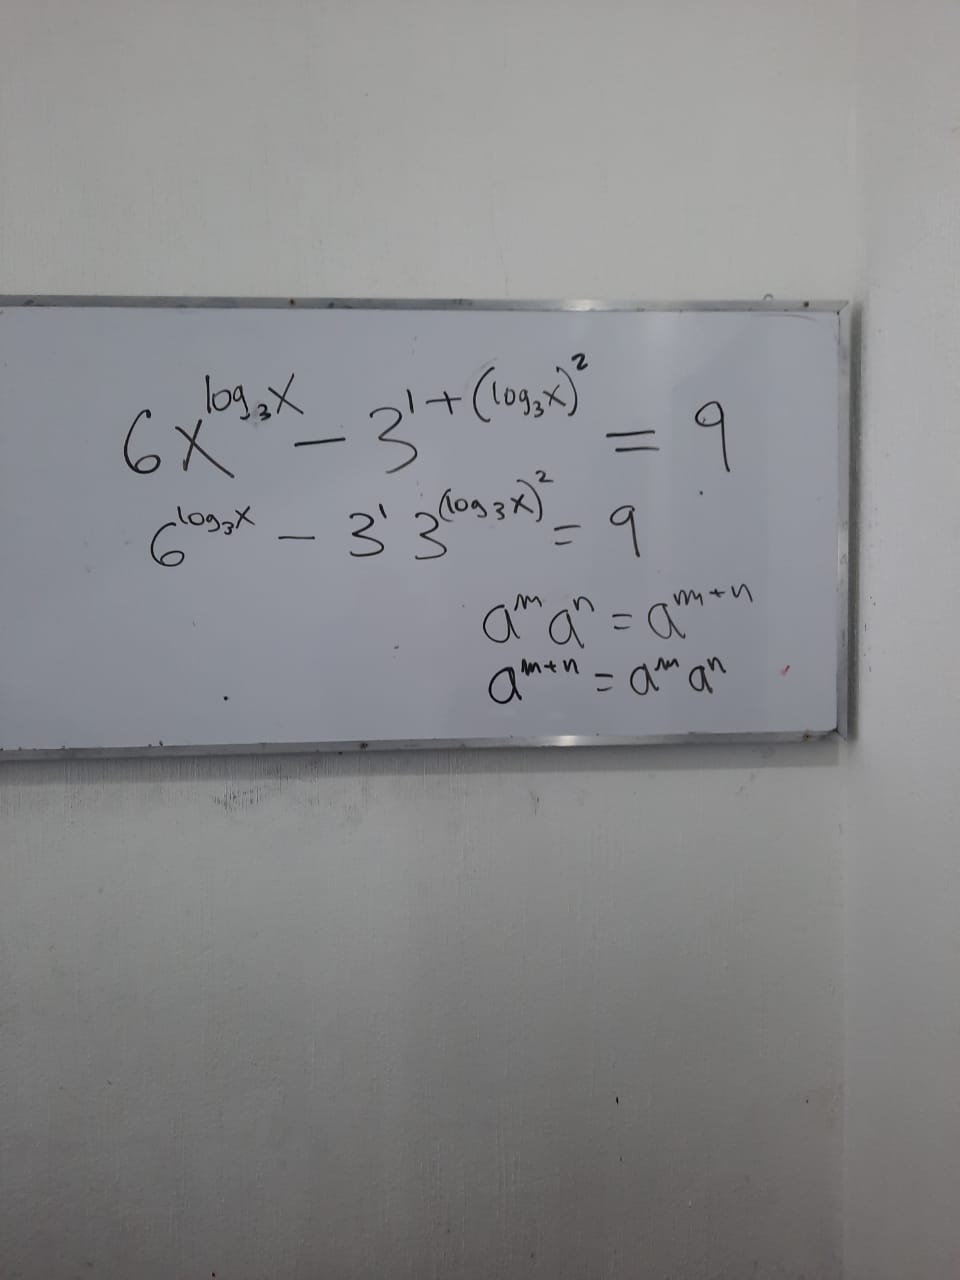 6x^{log₃x} − 3^{1+(log₃x)²} = 9
6^{log₃x} − 3¹ 3^{(log₃x)²} = 9
a^m a^n = a^{m+n}
a^{m+n} = a^m a^n